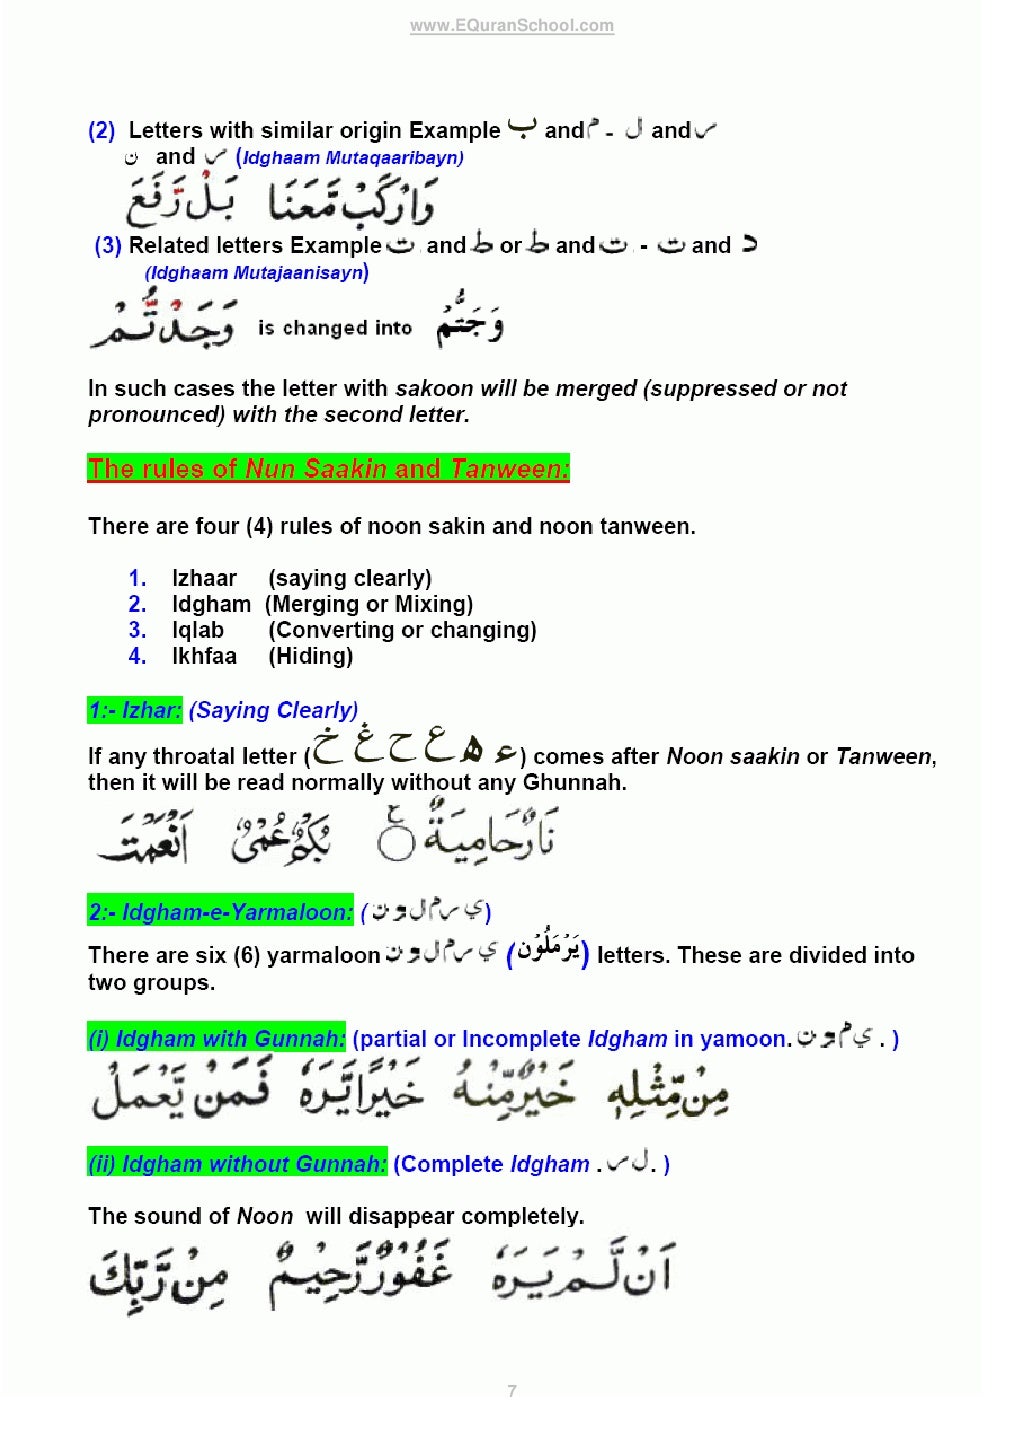 www.EQuranSchool.com
(2) Letters with similar origin Example ب and م - ل and ر
ن and ر (Idghaam Mutaqaaribayn)
وَارْكَبْ مَّعَنَا بَلْ رَّفَعَ
(3) Related letters Example ت and ط or ط and ت - ت and د
(Idghaam Mutajaanisayn)
وَجَدْتُّمْ is changed into وَجَتُّمْ
In such cases the letter with sakoon will be merged (suppressed or not
pronounced) with the second letter.
The rules of Nun Saakin and Tanween:
There are four (4) rules of noon sakin and noon tanween.
1. Izhaar (saying clearly)
2. Idgham (Merging or Mixing)
3. Iqlab (Converting or changing)
4. Ikhfaa (Hiding)
1:- Izhar: (Saying Clearly)
If any throatal letter (ء ه ع ح غ خ) comes after Noon saakin or Tanween,
then it will be read normally without any Ghunnah.
نَارٌحَامِيَةٌ بُكْمٌ عُمْىٌ اَنْعَمْتَ
2:- Idgham-e-Yarmaloon: (ي ر م ل و ن)
There are six (6) yarmaloon ي ر م ل و ن (يَرْمَلُوْن) letters. These are divided into
two groups.
(i) Idgham with Gunnah: (partial or Incomplete Idgham in yamoon. ي م و ن . )
مِنْ مِّثْلِهٖ خَيْرٌ مِّنْهُ خَيْرًا يَّرَهٗ فَمَنْ يَّعْمَلْ
(ii) Idgham without Gunnah: (Complete Idgham . ل ر . )
The sound of Noon will disappear completely.
اَنْ لَّمْ يَرَهٗ غَفُوْرٌ رَّحِيْمٌ مِنْ رَّبِّكَ
7